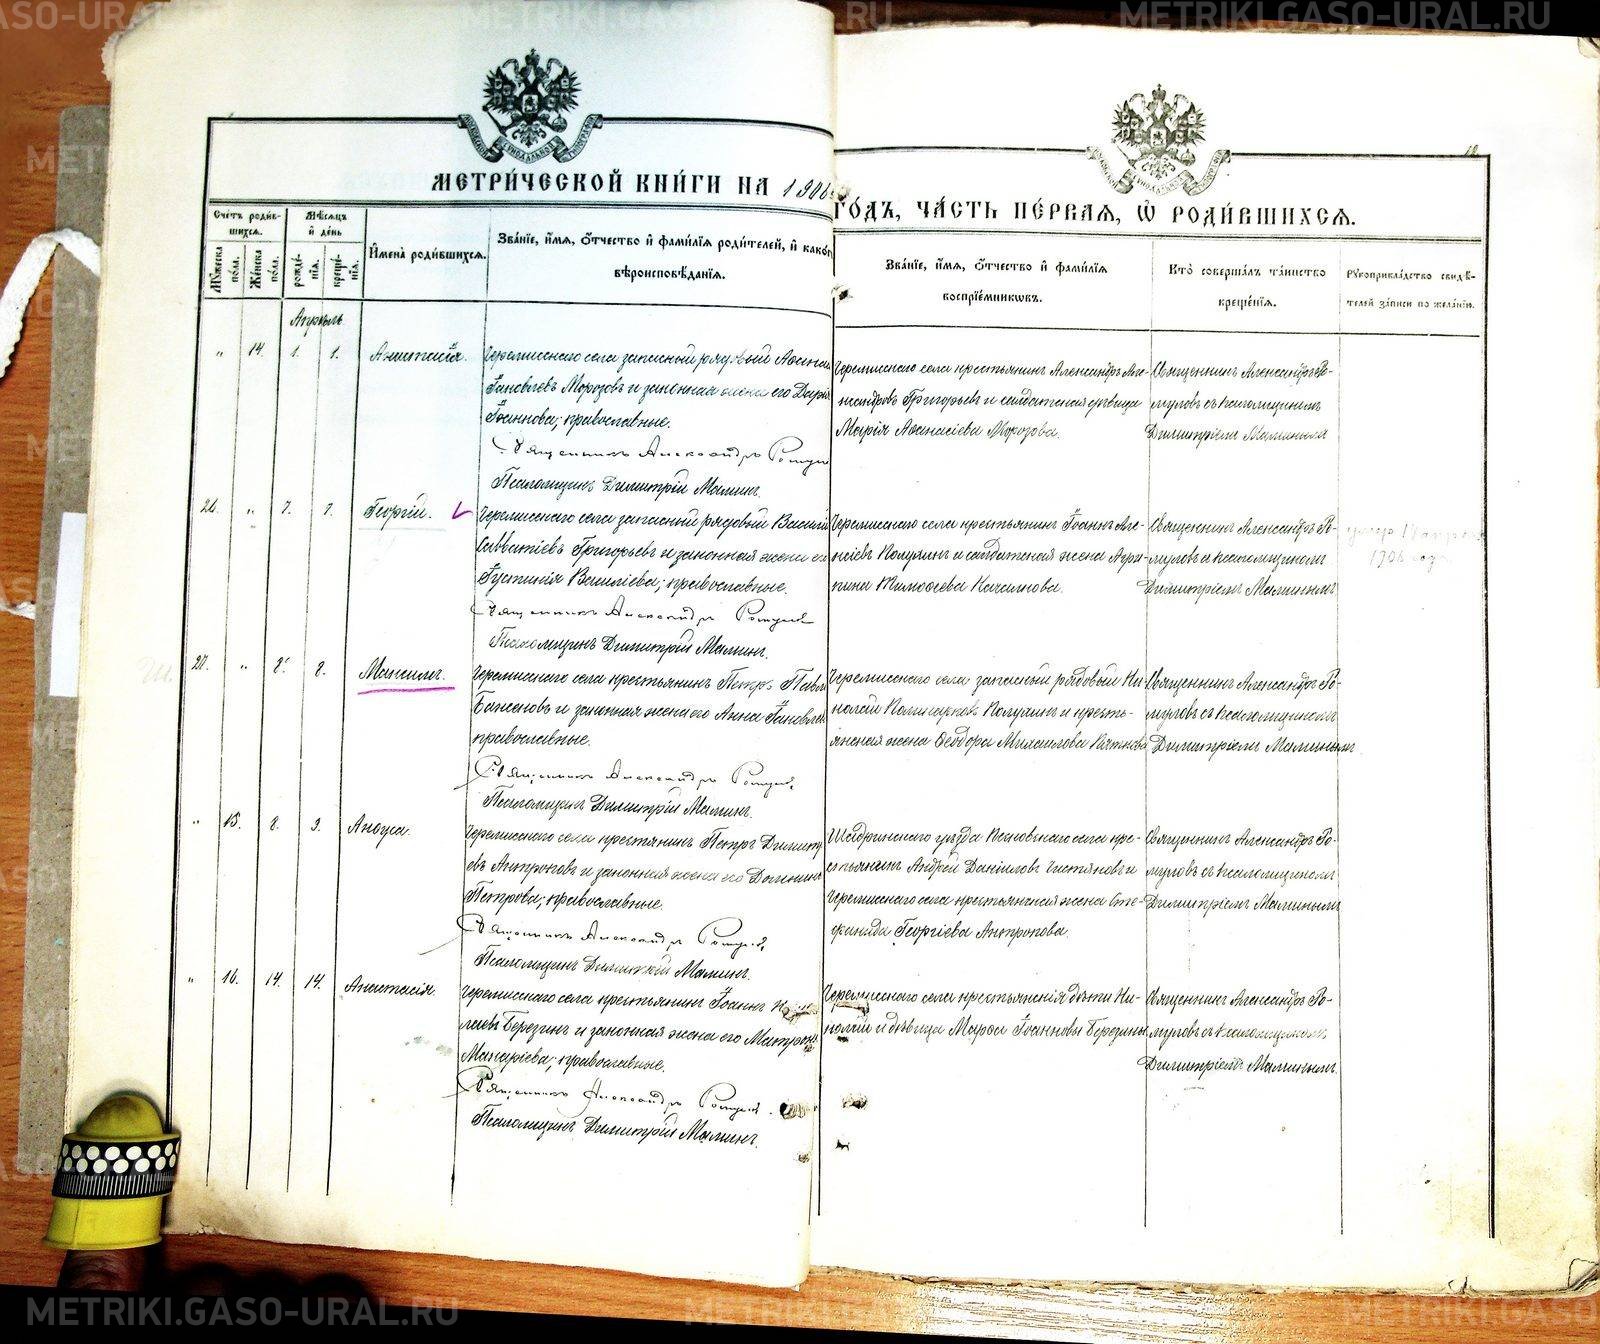 METRIKI.GASO-URAL.RU
МЕТРИ́ЧЕСКОЙ КНИ́ГИ НА 1906
ГО́ДЪ, ЧА́СТЬ ПЕ́РВАЯ, Ѡ РОДИ́ВШИХСЯ.
Сче́тъ роди́в-
шихся.
Мꙋ́жеска по́ла.
Же́нска по́ла.
Мѣ́сяцъ
и҆ де́нь
рожде́-
нїя.
креще́-
нїя.
И҆мена̀ роди́вшихся.
Зва́нїе, и҆́мя, ѻ҆́тчество и҆ фами́лїя роди́телей, и҆ како́г
вѣроисповѣ́данїя.
Зва́нїе, и҆́мя, ѻ҆́тчество и҆ фами́лїя
воспрїе́мниковъ.
Кто̀ соверша́лъ та́инство
креще́нїя.
Рꙋкоприкла́дство свидѣ́-
телей за́писи по жела́нїю.
Апрѣль
" 14. 1. 1. Анастасія.
Черемисскаго села запасный рядовый
Морозовъ и законная жена его Дарія
Іоаннова; православные.
Священникъ Александръ
Псаломщикъ Димитрій Малинъ.
Черемисскаго села крестьянинъ Александръ Але-
ксандровъ Григорьевъ и солдатская дѣвица
Марія Аѳанасіева Морозова.
Священникъ Александръ Ро-
муловъ съ псаломщикомъ
Димитріемъ Малинымъ
26. " 7. 7. Георгій.
Черемисскаго села запасный рядовый Василій
Савватіевъ Григорьевъ и законная жена его
Іустинія Василіева; православные.
Священникъ Александръ
Псаломщикъ Димитрій Малинъ.
Черемисскаго села крестьянинъ Іоаннъ Але-
ксіевъ и солдатская жена Агри-
пина Тимоѳеева
Священникъ Александръ Ро-
муловъ съ псаломщикомъ
Димитріемъ Малинымъ
1906 года
27. " 8. 8. Максимъ.
Черемисскаго села крестьянинъ Петръ Павл
Бажековъ и законная жена его Анна
православные.
Священникъ Александръ
Псаломщикъ Димитрій Малинъ.
Черемисскаго села запасный рядовый Ни-
колай и кресть-
янская жена Ѳеодора Михаилова
Священникъ Александръ Ро-
муловъ съ псаломщикомъ
Димитріемъ Малинымъ
" 15. 8. 9.
Черемисскаго села крестьянинъ Петръ Димитрі
евъ Антроповъ и законная жена его
Петрова; православные.
Священникъ Александръ
Псаломщикъ Димитрій Малинъ.
Шадринскаго уѣзда села кре-
стьянинъ Андрей Даніиловъ и
Черемисскаго села крестьянская жена Сте-
фанида Георгіева Антропова.
Священникъ Александръ Ро-
муловъ съ псаломщикомъ
Димитріемъ Малинымъ
" 16. 14. 14. Анастасія.
Черемисскаго села крестьянинъ Іоаннъ
Березинъ и законная жена его Матрона
Макаріева; православные.
Священникъ Александръ
Псаломщикъ Димитрій Малинъ.
Черемисскаго села крестьянскія дѣти Ни-
колай и дѣвица Марѳа Іоанновы Березины
Священникъ Александръ Ро-
муловъ съ псаломщикомъ
Димитріемъ Малинымъ
METRIKI.GASO-URAL.RU